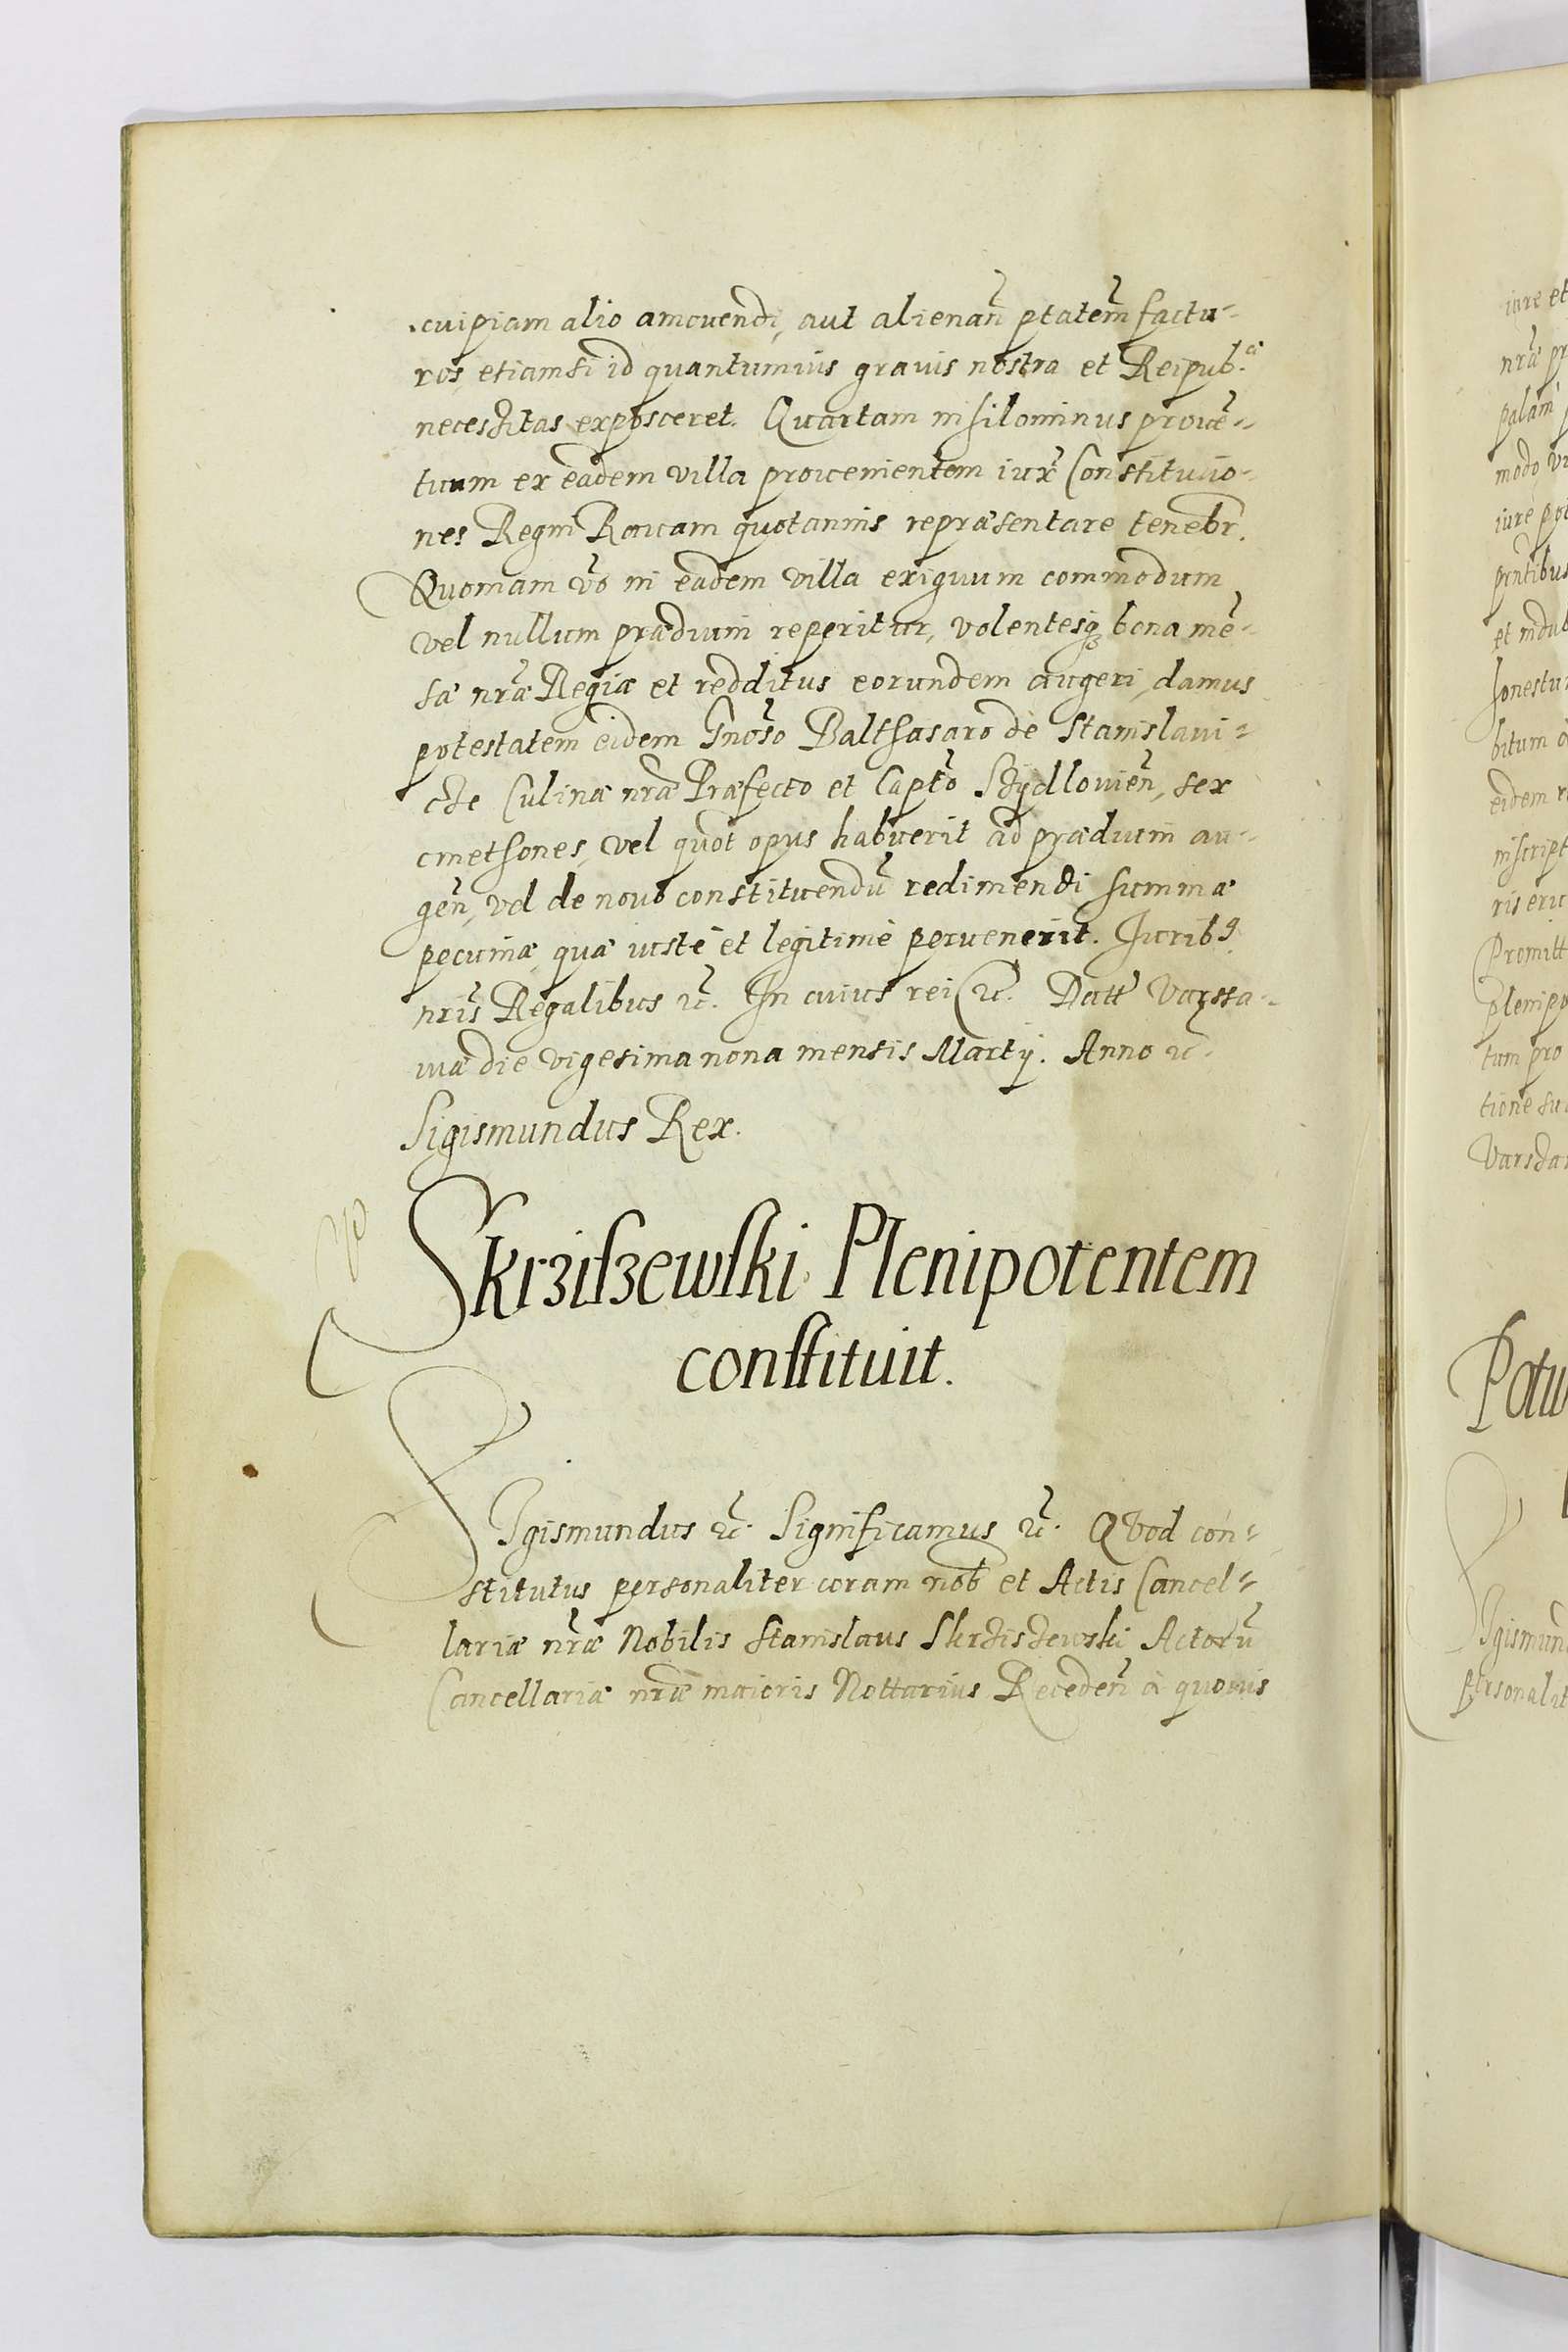 cuipiam alio amouendi, aut alienan̄ ptatem̄ factu-
ros, etiamsi id quantumuis grauis nostra et Reipub.
necessitas exposceret. Quartam nihilominus prouē-
tuum ex eadem villa prouenientem iux̄ Constitutio-
nes Regni Rauam quotannis repræsentare tenebr̄.
Quoniam v̄o in eadem villa exiguum commodum
vel nullum prædium reperitur, volentesq̨ bona mē-
sæ nr̄æ Regiæ et redditus eorundem augeri, damus
potestatem eidem Gnōso Balthasaro de Stanislaui-
cze Culinæ nr̄æ Præfecto et Captō Szydlouien̄, sex
cmethones, vel quot opus habuerit ad prædium au-
gen̄, vel de nouo constituendū redimendi summæ
pecuniæ, quæ iuste et legitime peruenerit. Iuribꝰ
nrīs Regalibus ꝛc̄. In cuius rei ꝛc̄. Datt Varssa-
uiæ die vigesima nona mensis Martij. Anno ꝛc̄.
Sigismundus Rex.
Skrziszewski Plenipotentem
constituit.
SIgismundus ꝛc̄. Significamus ꝛc̄. Quod con-
stitutus personaliter coram nob̄ et Actis Cancel-
lariæ nr̄æ Nobilis Stanislaus Skrziszewski Actorū
Cancellariæ nr̄æ maioris Nottarius Receden̄ à quouis
iure et
nr̄æ
palam
modo
iure
bitum
eidem
Promitt
tum pro
tione
SIgismun
personalit